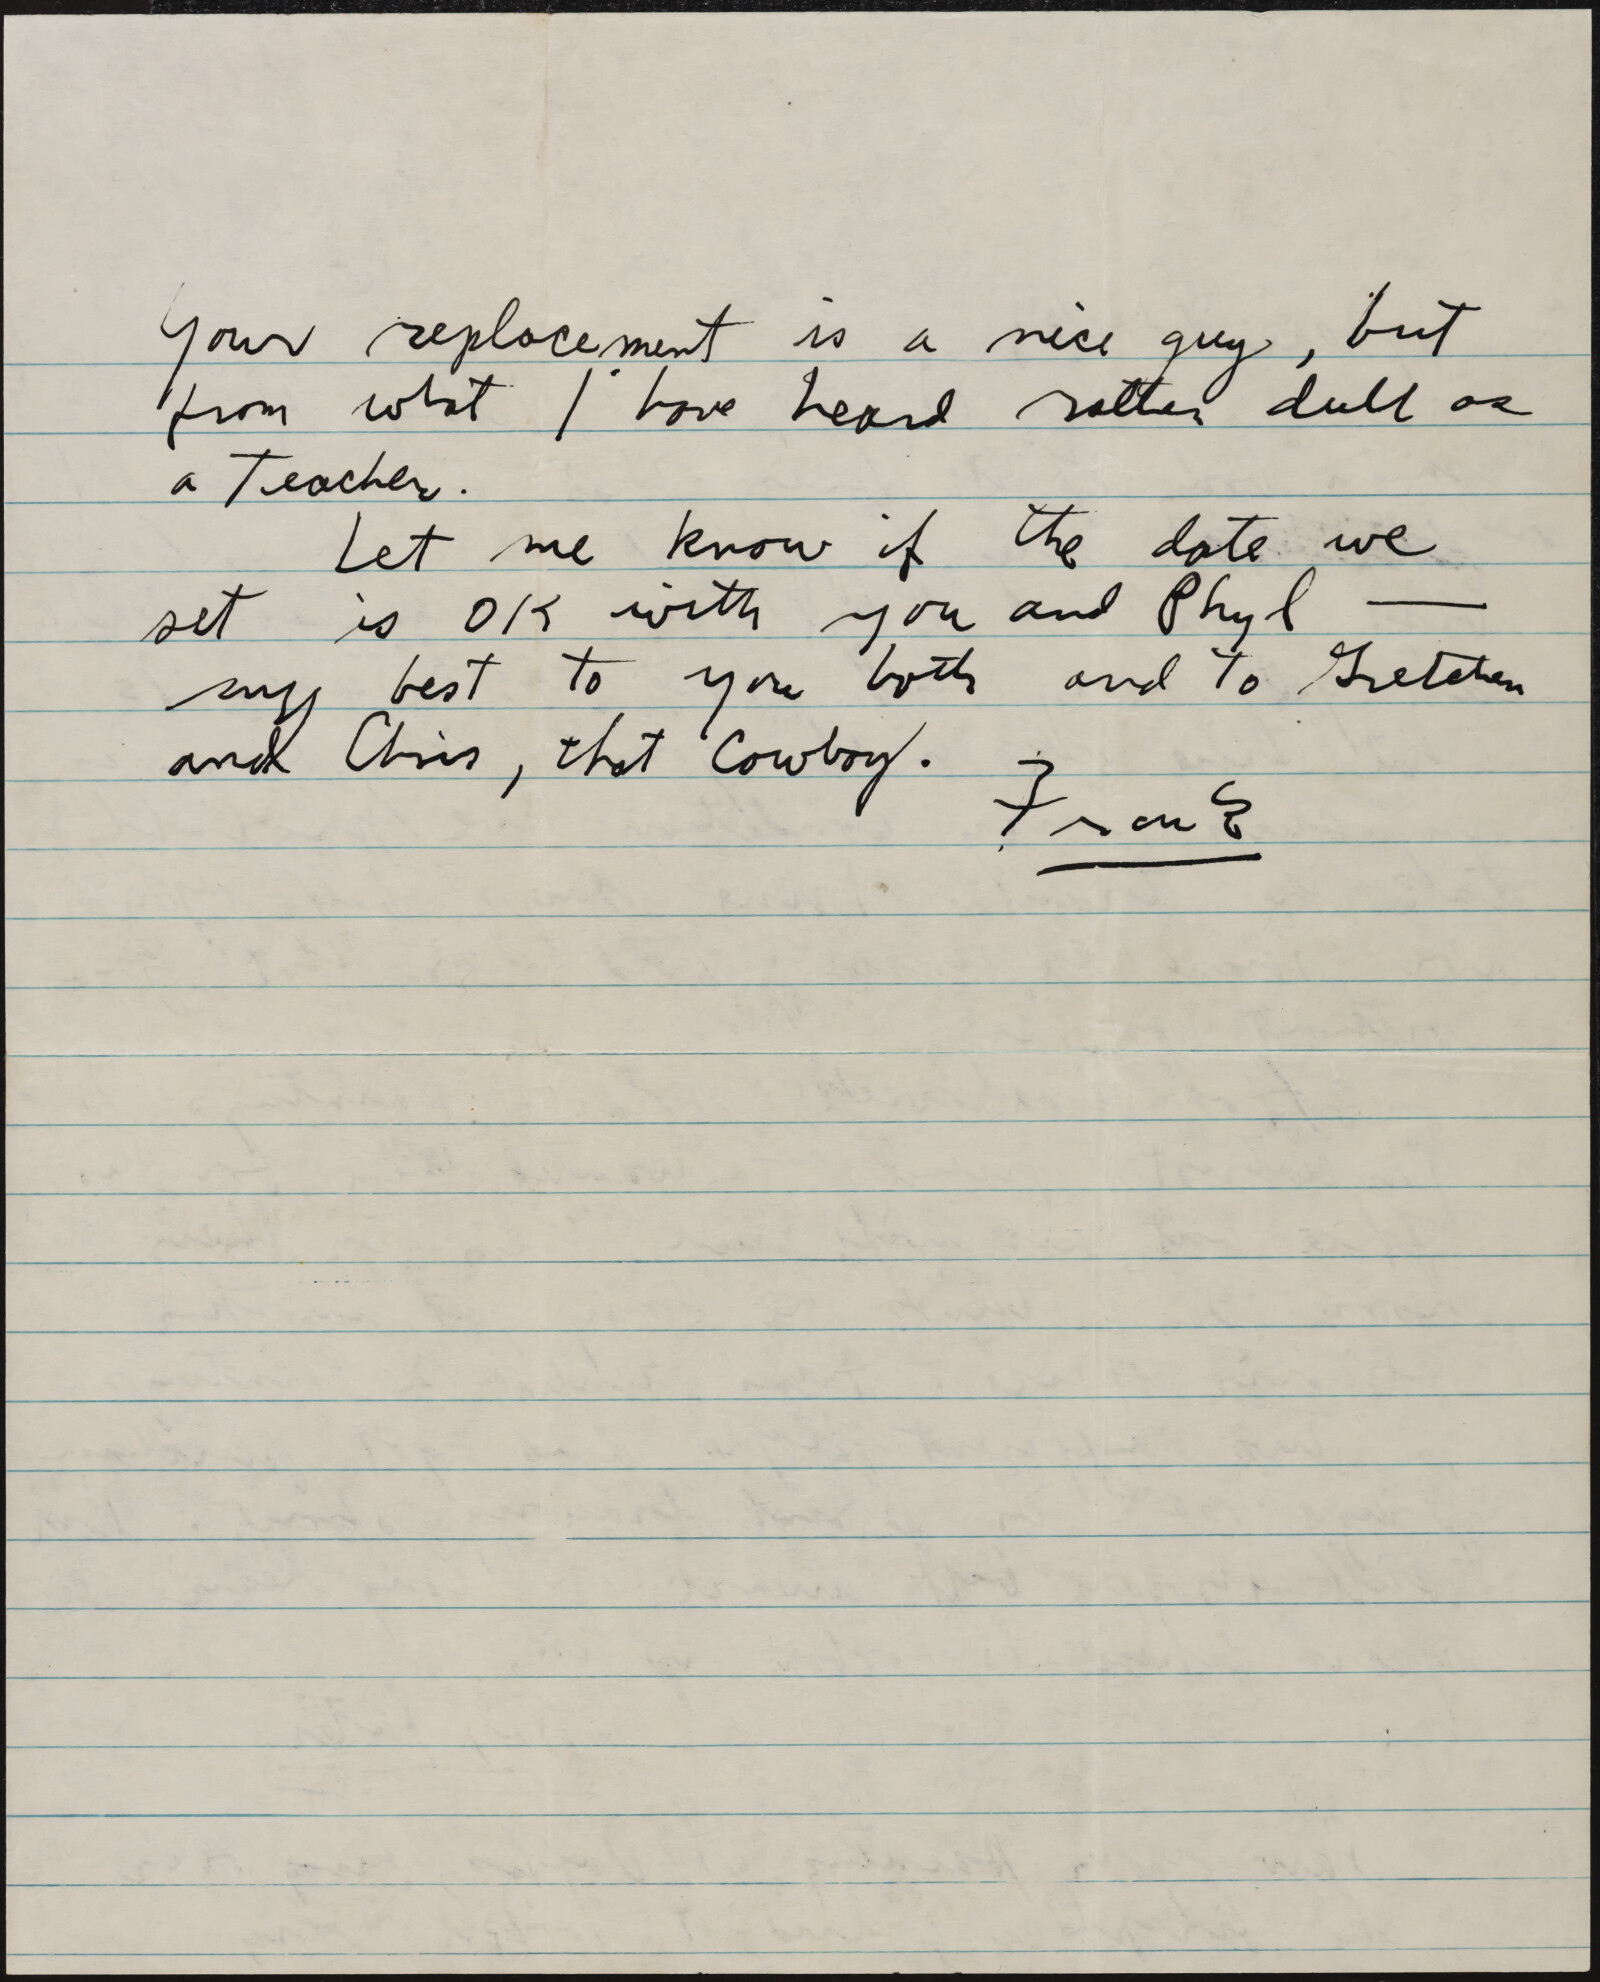 Your replacement is a nice guy, but
from what I have heard rather dull as
a Teacher.
Let me know if the date we
set is OK with you and Phyl —
my best to you both and to Gretchen
and Chris, that Cowboy.
Frank